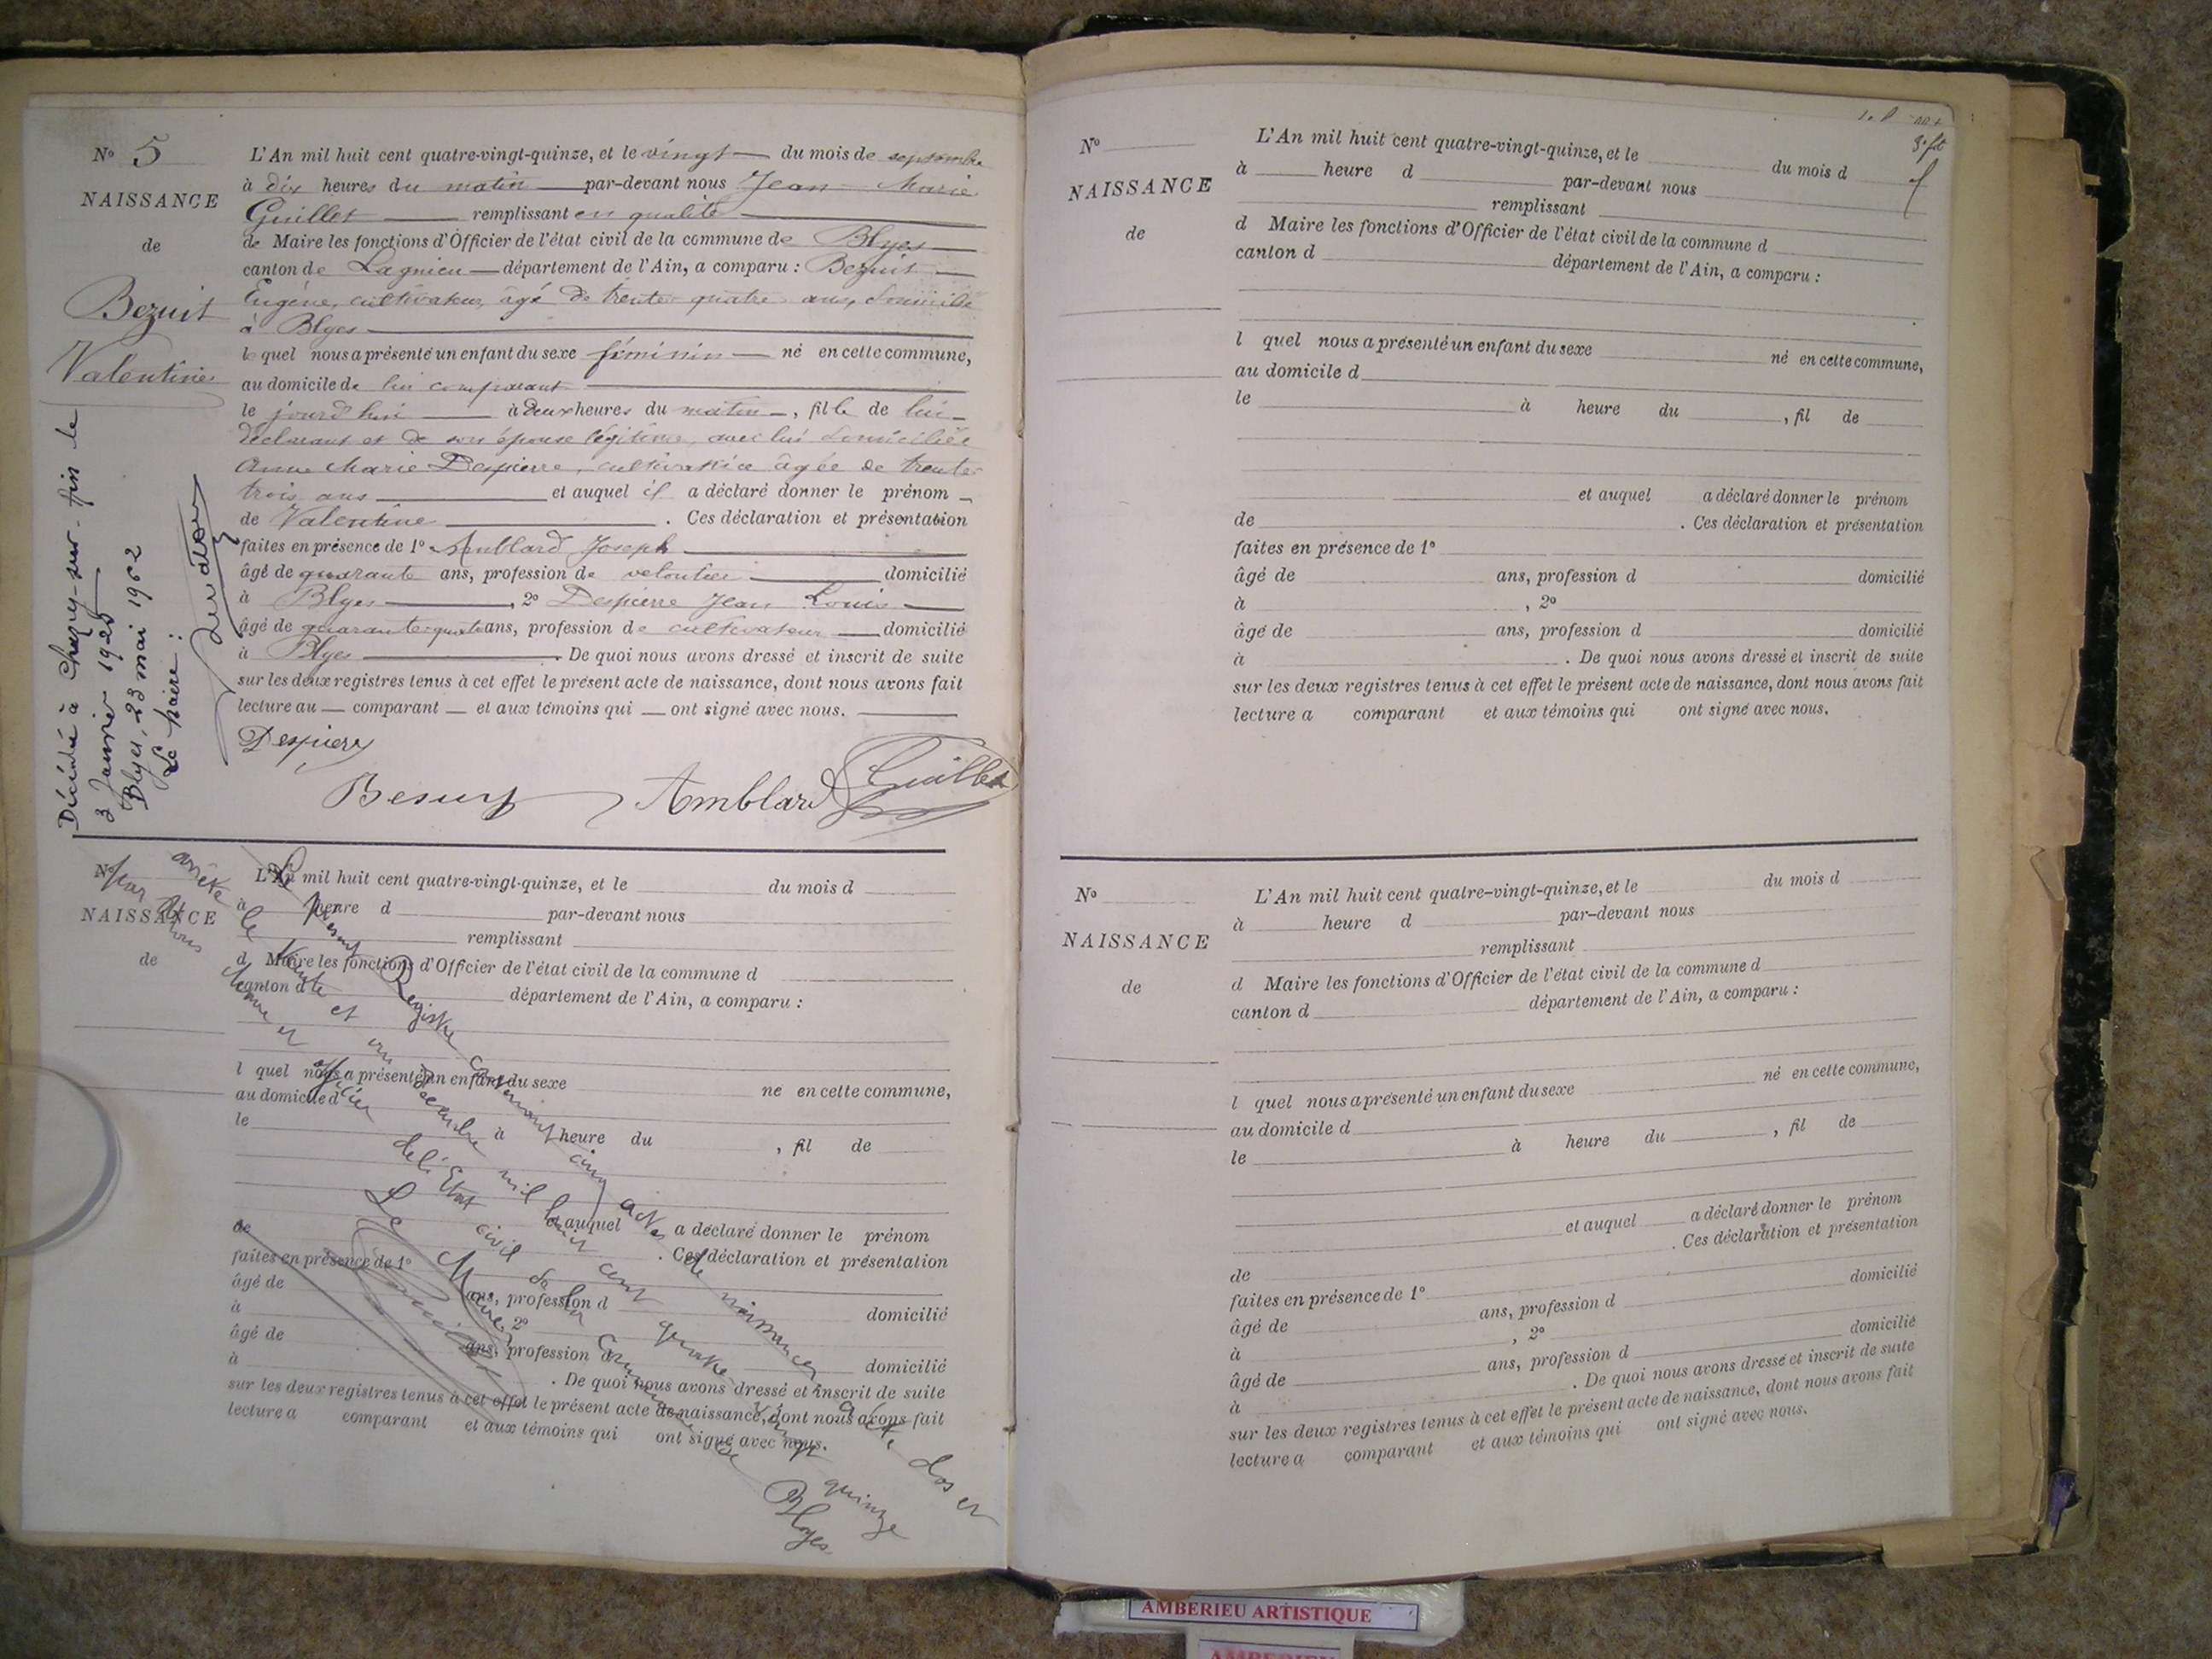 N° 5
NAISSANCE
de
Bezuit
Valentine
L'An mil huit cent quatre-vingt-quinze, et le vingt du mois de septembre
à dix heures du matin par-devant nous Jean Marie
Guillet remplissant en qualité
de Maire les fonctions d'Officier de l'état civil de la commune de Blyes
canton de Lagnieu département de l'Ain, a comparu : Bezuit
Eugène, cultivateur, âgé de trente quatre ans, domicilié
à Blyes
le quel nous a présenté un enfant du sexe féminin né en cette commune,
au domicile de lui comparant
le jourd'hui à deux heures du matin, fille de lui
déclarant et de son épouse légitime, avec lui domiciliée
Anne Marie Despierre, cultivatrice âgée de trente
trois ans et auquel il a déclaré donner le prénom
de Valentine. Ces déclaration et présentation
faites en présence de 1° Amblard Joseph
âgé de quarante ans, profession de veloutier domicilié
à Blyes, 2° Despierre Jean Louis
âgé de quarante quatre ans, profession de cultivateur domicilié
à Blyes. De quoi nous avons dressé et inscrit de suite
sur les deux registres tenus à cet effet le présent acte de naissance, dont nous avons fait
lecture au comparant et aux témoins qui ont signé avec nous.
Despierre
Besuy Amblard Guillet
Décédée à Chazey-sur-Ain le
3 Janvier 1920
Blyes, 23 mai 1952
Le Maire :
N°
NAISSANCE
de
L'An mil huit cent quatre-vingt-quinze, et le du mois d
à heure d par-devant nous
remplissant
d Maire les fonctions d'Officier de l'état civil de la commune d
canton d département de l'Ain, a comparu :
l quel nous a présenté un enfant du sexe né en cette commune,
au domicile d
le à heure du , fil de
et auquel a déclaré donner le prénom
de . Ces déclaration et présentation
faites en présence de 1°
âgé de ans, profession d domicilié
à , 2°
âgé de ans, profession d domicilié
à . De quoi nous avons dressé et inscrit de suite
sur les deux registres tenus à cet effet le présent acte de naissance, dont nous avons fait
lecture a comparant et aux témoins qui ont signé avec nous.
Le présent Registre contenant cinq actes de naissances a été clos et
arrêté le trente et un décembre mil huit cent quatre vingt quinze
par Nous Maire et officier de l'Etat civil de la Commune de Blyes
Le Maire,
Guillet
N°
NAISSANCE
de
L'An mil huit cent quatre-vingt-quinze, et le du mois d
à heure d par-devant nous
remplissant
d Maire les fonctions d'Officier de l'état civil de la commune d
canton d département de l'Ain, a comparu :
l quel nous a présenté un enfant du sexe né en cette commune,
au domicile d
le à heure du , fil de
et auquel a déclaré donner le prénom
de . Ces déclaration et présentation
faites en présence de 1°
âgé de ans, profession d domicilié
à , 2°
âgé de ans, profession d domicilié
à . De quoi nous avons dressé et inscrit de suite
sur les deux registres tenus à cet effet le présent acte de naissance, dont nous avons fait
lecture a comparant et aux témoins qui ont signé avec nous.
N°
NAISSANCE
de
L'An mil huit cent quatre-vingt-quinze, et le du mois d
à heure d par-devant nous
remplissant
d Maire les fonctions d'Officier de l'état civil de la commune d
canton d département de l'Ain, a comparu :
l quel nous a présenté un enfant du sexe né en cette commune,
au domicile d
le à heure du , fil de
et auquel a déclaré donner le prénom
de . Ces déclaration et présentation
faites en présence de 1°
âgé de ans, profession d domicilié
à , 2°
âgé de ans, profession d domicilié
à . De quoi nous avons dressé et inscrit de suite
sur les deux registres tenus à cet effet le présent acte de naissance, dont nous avons fait
lecture a comparant et aux témoins qui ont signé avec nous.
AMBERIEU ARTISTIQUE
AMBERIEU